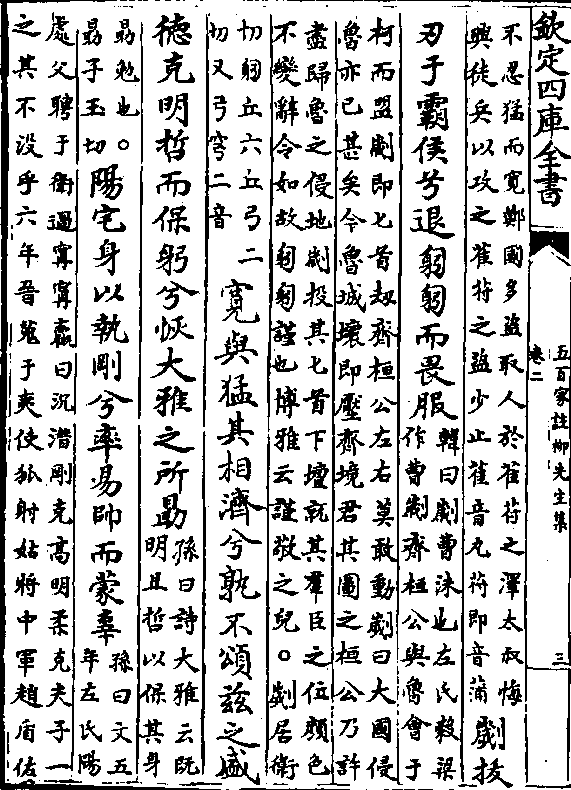 欽定四庫全書
五百家註柳先生集
卷二
三
不忍猛而寛鄭國多盗取人於萑苻之澤太叔悔
興徒兵以攻之萑苻之盗少止萑音丸苻即音蒲
劌拔
刃于霸侯兮退匑匑而畏服
韓曰劌曹沬也左氏穀梁
作曹劌齊桓公與魯會于
柯而盟劌即匕首刼齊桓公左右莫敢動劌曰大國侵
魯亦已甚矣今魯城壞即壓齊境君其圖之桓公乃許
盡歸魯之侵地劌投其匕首下壇就其羣臣之位顔色
不變辭令如故匑匑謹也博雅云謹敬之皃。劌居衛
切匑丘六丘弓二
切又弓穹二音
寛與猛其相濟兮孰不頌兹之盛
德克明哲而保躬兮恢大雅之所勗
孫曰詩大雅云既
明且哲以保其身
勗勉也。
勗子玉切
陽宅身以執剛兮率易帥而蒙辜
孫曰文五
年左氏陽
處父聘于衛過寗寗嬴曰沉潛剛克高明柔克夫子一
之其不没乎六年晉蒐于夷使狐射姑將中軍趙盾佐